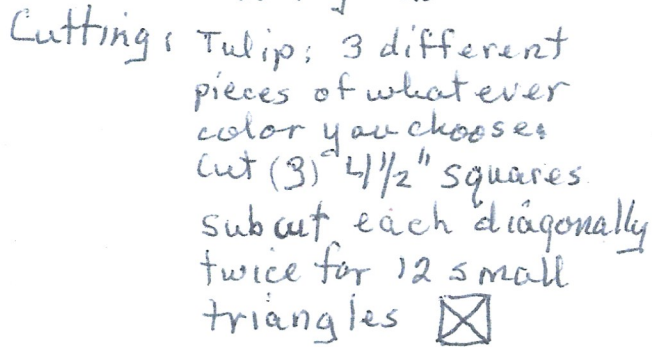 Cutting: Tulip: 3 different
pieces of whatever
color you choose.
Cut (3) 4 1/2" squares
subcut each diagonally
twice for 12 small
triangles